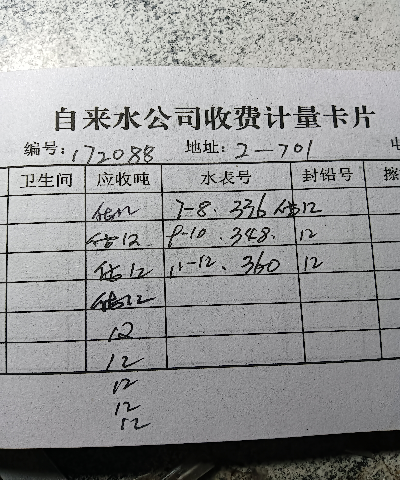 自来水公司收费计量卡片
编号: 172088 地址: 2-701 电
卫生间 应收吨 水表号 封铅号 擦
估12 7-8. 336 估12
估12 9-10. 348. 12
估12 11-12. 360 12
估12
12
12
12
12
12